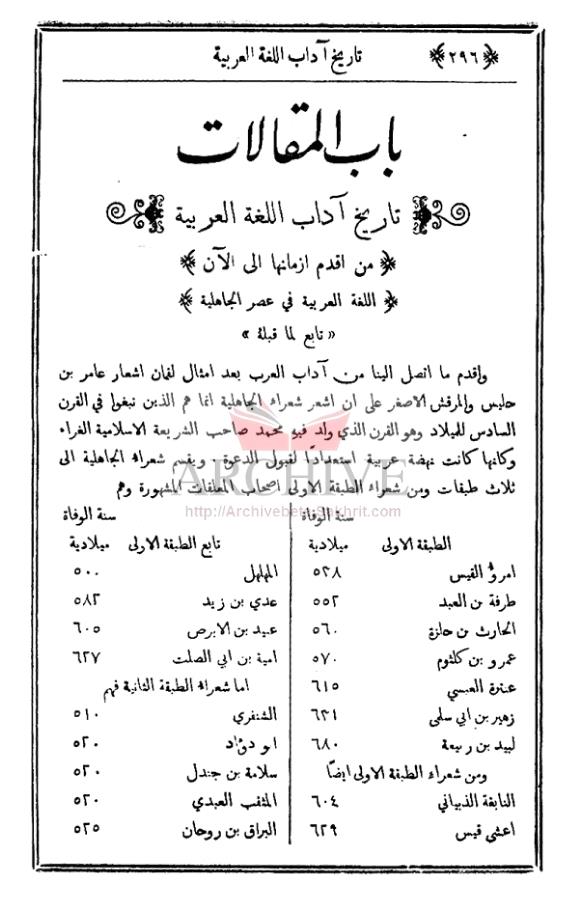 ﴿٢٩٦﴾ تاريخ آداب اللغة العربية
باب المقالات
تاريخ آداب اللغة العربية
﴿ من اقدم ازمانها الى الآن ﴾
﴿ اللغة العربية في عصر الجاهلية ﴾
« تابع لما قبلهُ »
واقدم ما اتصل الينا من آداب العرب بعد امثال لقمان اشعار عامر بن
حليس والمرقش الاصغر على ان اشعر شعراء الجاهلية انما هم الذين نبغوا في القرن
السادس للميلاد وهو القرن الذي ولد فيه محمد صاحب الشريعة الاسلامية الغراء
وكانها كانت نهضة عربية استعدادًا لقبول الدعوة . ويقسم شعراء الجاهلية الى
ثلاث طبقات ومن شعراء الطبقة الاولى اصحاب المعلقات المشهورة وهم
ARCHIVE
http://Archivebeta.Sakhrit.com
سنة الوفاة
الطبقة الاولى ميلادية
امرؤ القيس ٥٣٨
طرفة بن العبد ٥٥٢
الحارث بن حلزة ٥٦٠
عمرو بن كلثوم ٥٧٠
عنترة العبسي ٦١٥
زهير بن ابي سلمى ٦٣١
لبيد بن ربيعة ٦٨٠
ومن شعراء الطبقة الاولى ايضًا
النابغة الذبياني ٦٠٤
اعشى قيس ٦٢٩
سنة الوفاة
تابع الطبقة الاولى ميلادية
المهلهل ٥٠٠
عدي بن زيد ٥٨٢
عبيد بن الابرص ٦٠٥
امية بن ابي الصلت ٦٢٧
اما شعراء الطبقة الثانية فهم
الشنفرى ٥١٠
ابو دؤاد ٥٢٠
سلامة بن جندل ٥٢٠
المثقب العبدي ٥٢٠
البراق بن روحان ٥٢٥